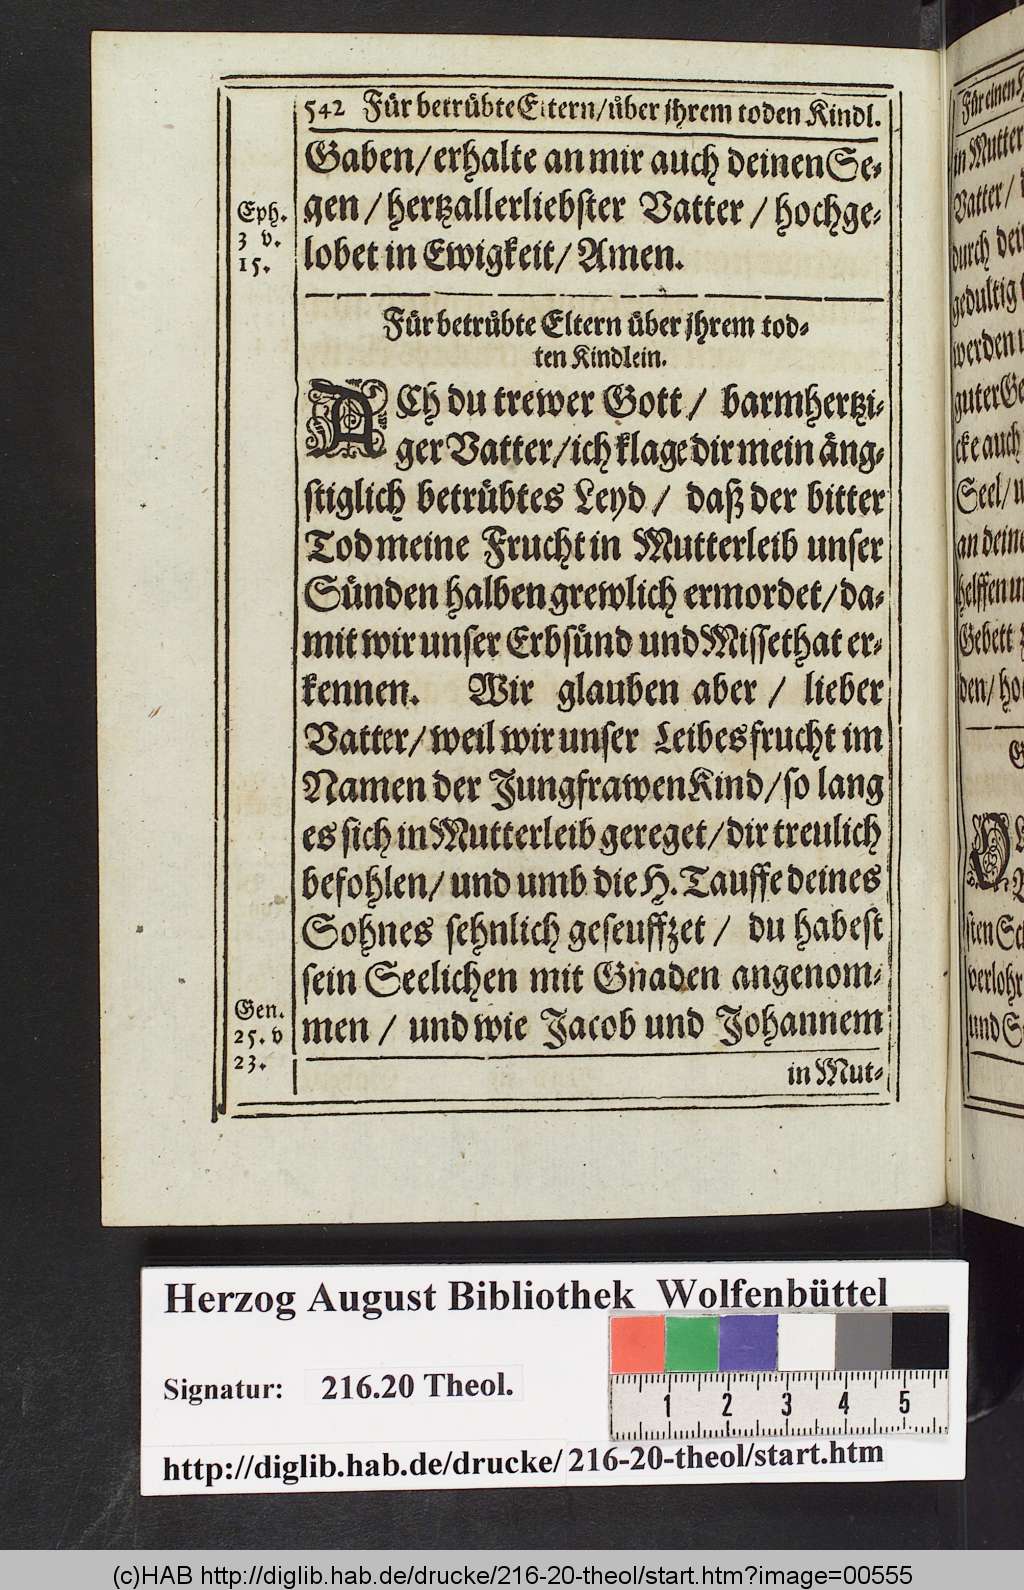 542 Für betrübte Eltern/über jhrem toden Kindl.
Gaben/erhalte an mir auch deinen Se-
gen/hertzallerliebster Vatter/hochge-
lobet in Ewigkeit/Amen.
Eph.
3 v.
15.
Für betrübte Eltern über jhrem tod-
ten Kindlein.
ACh du trewer Gott/ barmhertzi-
ger Vatter/ich klage dir mein äng-
stiglich betrübtes Leyd/ daß der bitter
Tod meine Frucht in Mutterleib unser
Sünden halben grewlich ermordet/da-
mit wir unser Erbsünd und Missethat er-
kennen. Wir glauben aber/ lieber
Vatter/weil wir unser Leibesfrucht im
Namen der Jungfrawen Kind/so lang
es sich in Mutterleib gereget/dir treulich
befohlen/und umb die H. Tauffe deines
Sohnes sehnlich geseuffzet/ du habest
sein Seelichen mit Gnaden angenom-
men/ und wie Jacob und Johannem
Gen.
25. v
23.
in Mut-
Für einen
in Mutter
Vatter/
durch dei
gedultig
werden
guter Ge
cke auch
Seel/
an deine
helffen
Gebett
den/ho
sten Sc
verlohr
und S
Herzog August Bibliothek Wolfenbüttel
Signatur: 216.20 Theol.
1 2 3 4 5
http://diglib.hab.de/drucke/216-20-theol/start.htm
(c)HAB http://diglib.hab.de/drucke/216-20-theol/start.htm?image=00555